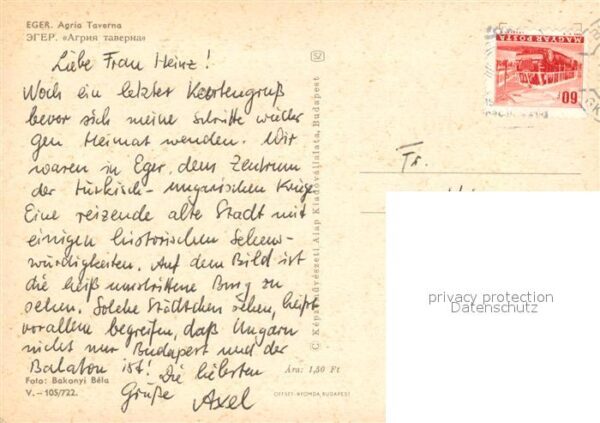 EGER. Agria Taverna
ЭГЕР. «Агрия таверна»
Liebe Frau Heinz!
Noch ein letzter Kartengruß
bevor sich meine Schritte wieder
gen Heimat wenden. Wir
waren in Eger, dem Zentrum
der türkisch-ungarischen Kriege
Eine reizende alte Stadt mit
einigen historischen Sehens-
würdigkeiten. Auf dem Bild ist
die heiß umstrittene Burg zu
sehen. Solche Städtchen sehen, heißt
vorallem begreifen, daß Ungarn
nicht nur Budapest und der
Balaton ist! Die liebsten
Grüße Axel
Foto: Bakonyi Béla
V.—105/722.
Ára: 1,50 Ft
OFFSET-NYOMDA, BUDAPEST
© Képzőművészeti Alap Kiadóvállalata, Budapest
MAGYAR POSTA
60f
Fr.
privacy protection
Datenschutz